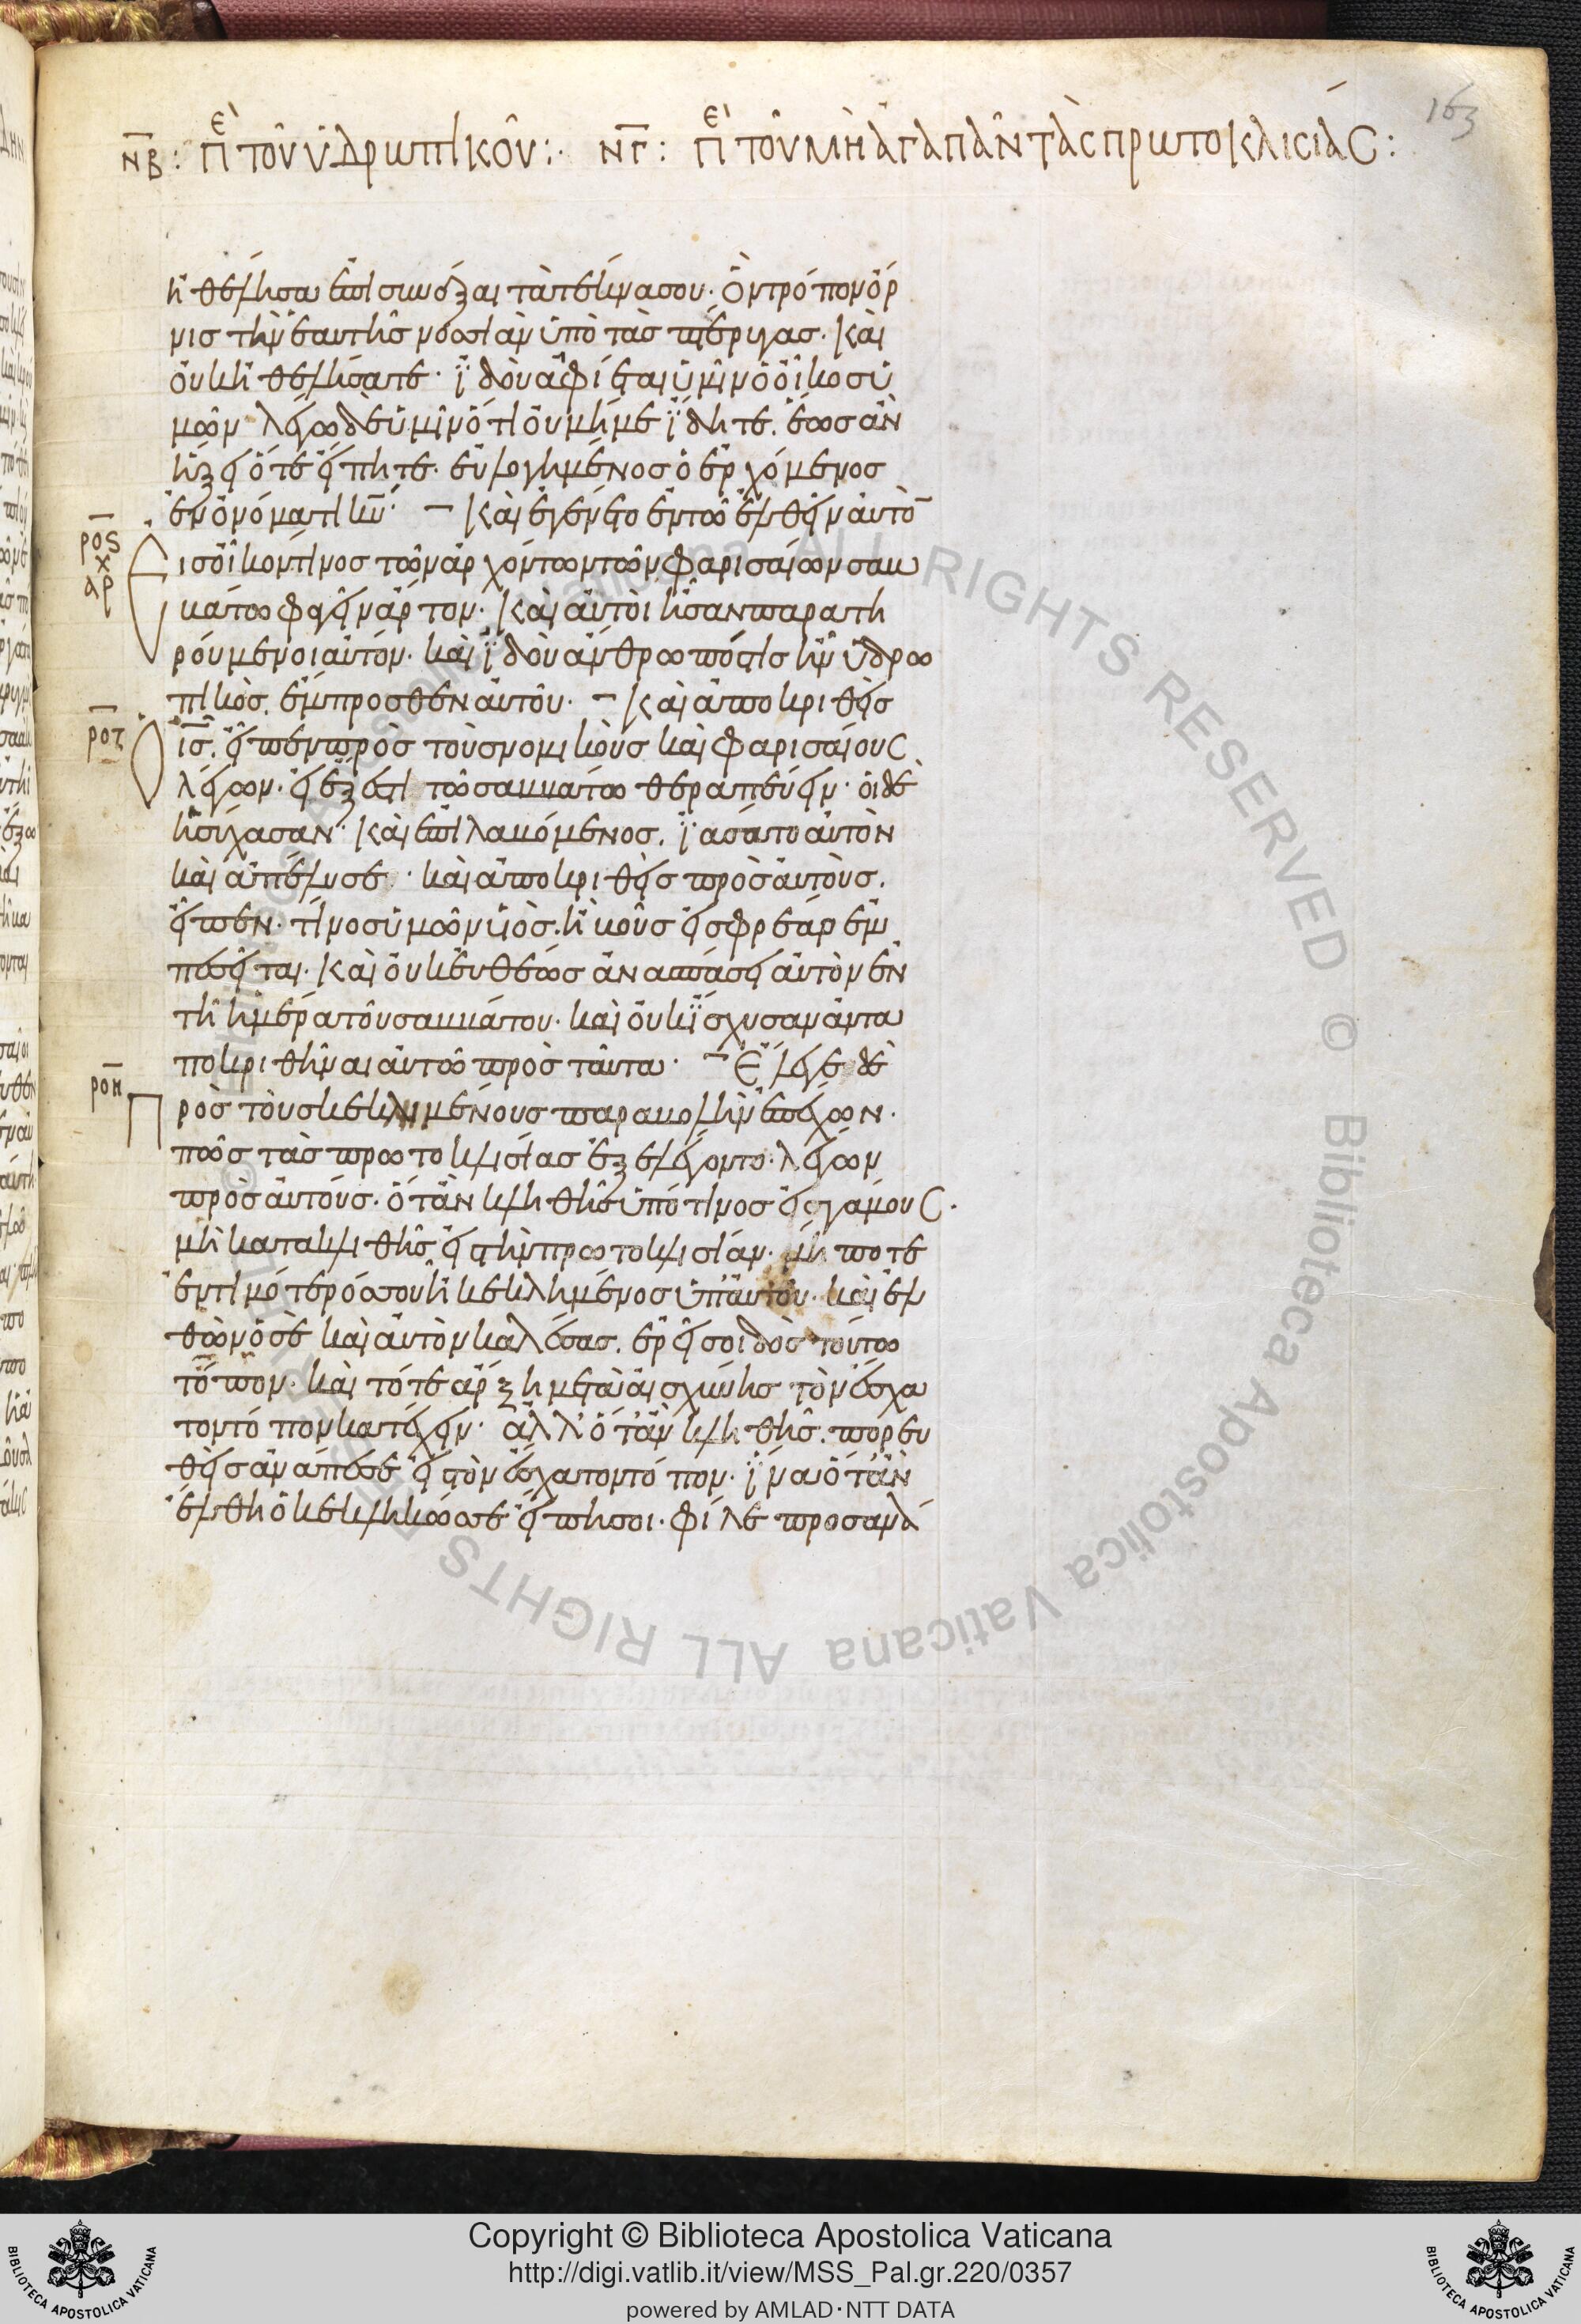 163
ΝΒ: ΠΕΡῚ ΤΟΥ͂ ὙΔΡΩΠΙΚΟΥ͂:· ΝΓ: ΠΕΡῚ ΤΟΥ͂ ΜῊ ἈΓΑΠΑ͂Ν ΤᾺΣ ΠΡΩΤΟΚΛΙΣΊΑΣ:
ἠθέλησα ἐπισυνάξαι τὰ τέκνα σου· ὃν τρόπον ὄρ
νις τὴν ἑαυτῆς νοσσιὰν ὑπὸ τὰς πτέρυγας· καὶ
οὐκ ἠθελήσατε· ϊδοὺ ἀφίεται ὑμῖν ὁ οἶκος ὑ
μῶν· λέγω δὲ ὑμῖν ὅτι οὐ μή με ϊδητε. ἕως ἂν
ἥξει ὅτε εἴπητε· εὐλογημένος ὁ ἐρχόμενος
ἐν ὀνόματι κυ· Καὶ ἐγένετο ἐν τῶ ἐλθεῖν αὐτὸ
ρος
χ
αρ
εἰς οἶκον τινος τῶν ἀρχόντων τῶν φαρισαίων σαβ
βάτω φαγεῖν ἄρτον· καὶ αὐτοὶ ἦσαν παρατη
ρούμενοι αὐτόν· καὶ ϊδοὺ ἄνθρωπός τις ἦν ὑδρω
πικὸς. ἔμπροσθεν αὐτοῦ· Καὶ ἀποκριθεὶς
ροζ
ὁ ις. εἶπεν πρὸς τοὺς νομικοὺς καὶ φαρισαίους
λέγων· εἰ ἔξεστι τῶ σαββάτω θεραπεύειν· οἱ δὲ
ἡσύχασαν· καὶ ἐπιλαβόμενος. ϊάσατο αὐτὸν
καὶ ἀπέλυσε· καὶ ἀποκριθεὶς πρὸς αὐτοὺς.
εἶπεν· τίνος ὑμῶν υἱὸς. ἢ βοῦς εἰς φρέαρ ἐμ
πεσεῖται· καὶ οὐκ εὐθέως ἀνασπάσει αὐτὸν ἐν
τῆ ἡμέρα τοῦ σαββάτου· καὶ οὐκ ϊσχυσαν ἀντα
ποκριθῆναι αὐτῶ πρὸς ταῦτα· Ἔλεγε δὲ
ροη
πρὸς τοὺς κεκλημένους παραβολὴν ἐπέχων·
πῶς τὰς πρωτοκλισίας ἐξελέγοντο· λέγων
πρὸς αὐτούς· ὅταν κληθῆς ὑπό τινος εἰς γάμους·
μὴ κατακλιθῆς εἰς τὴν πρωτοκλισίαν· μή ποτε
ἐντιμότερός σου ἦ κεκλημένος ὑπ' αὐτοῦ· καὶ ἐλ
θὼν ὁ σὲ καὶ αὐτὸν καλέσας. ἐρεῖ σοι δὸς τούτω
τόπον· καὶ τότε ἄρξη μετὰ αἰσχύνης τὸν ἔσχα
τον τόπον κατέχειν· ἀλλ' ὅταν κληθῆς. πορευ
θεὶς ἀνάπεσε εἰς τὸν ἔσχατον τόπον· ϊνα ὅταν
ἔλθη ὁ κεκληκώς σε εἴπη σοι· φίλε προσανά
Copyright © Biblioteca Apostolica Vaticana
http://digi.vatlib.it/view/MSS_Pal.gr.220/0357
powered by AMLAD·NTT DATA